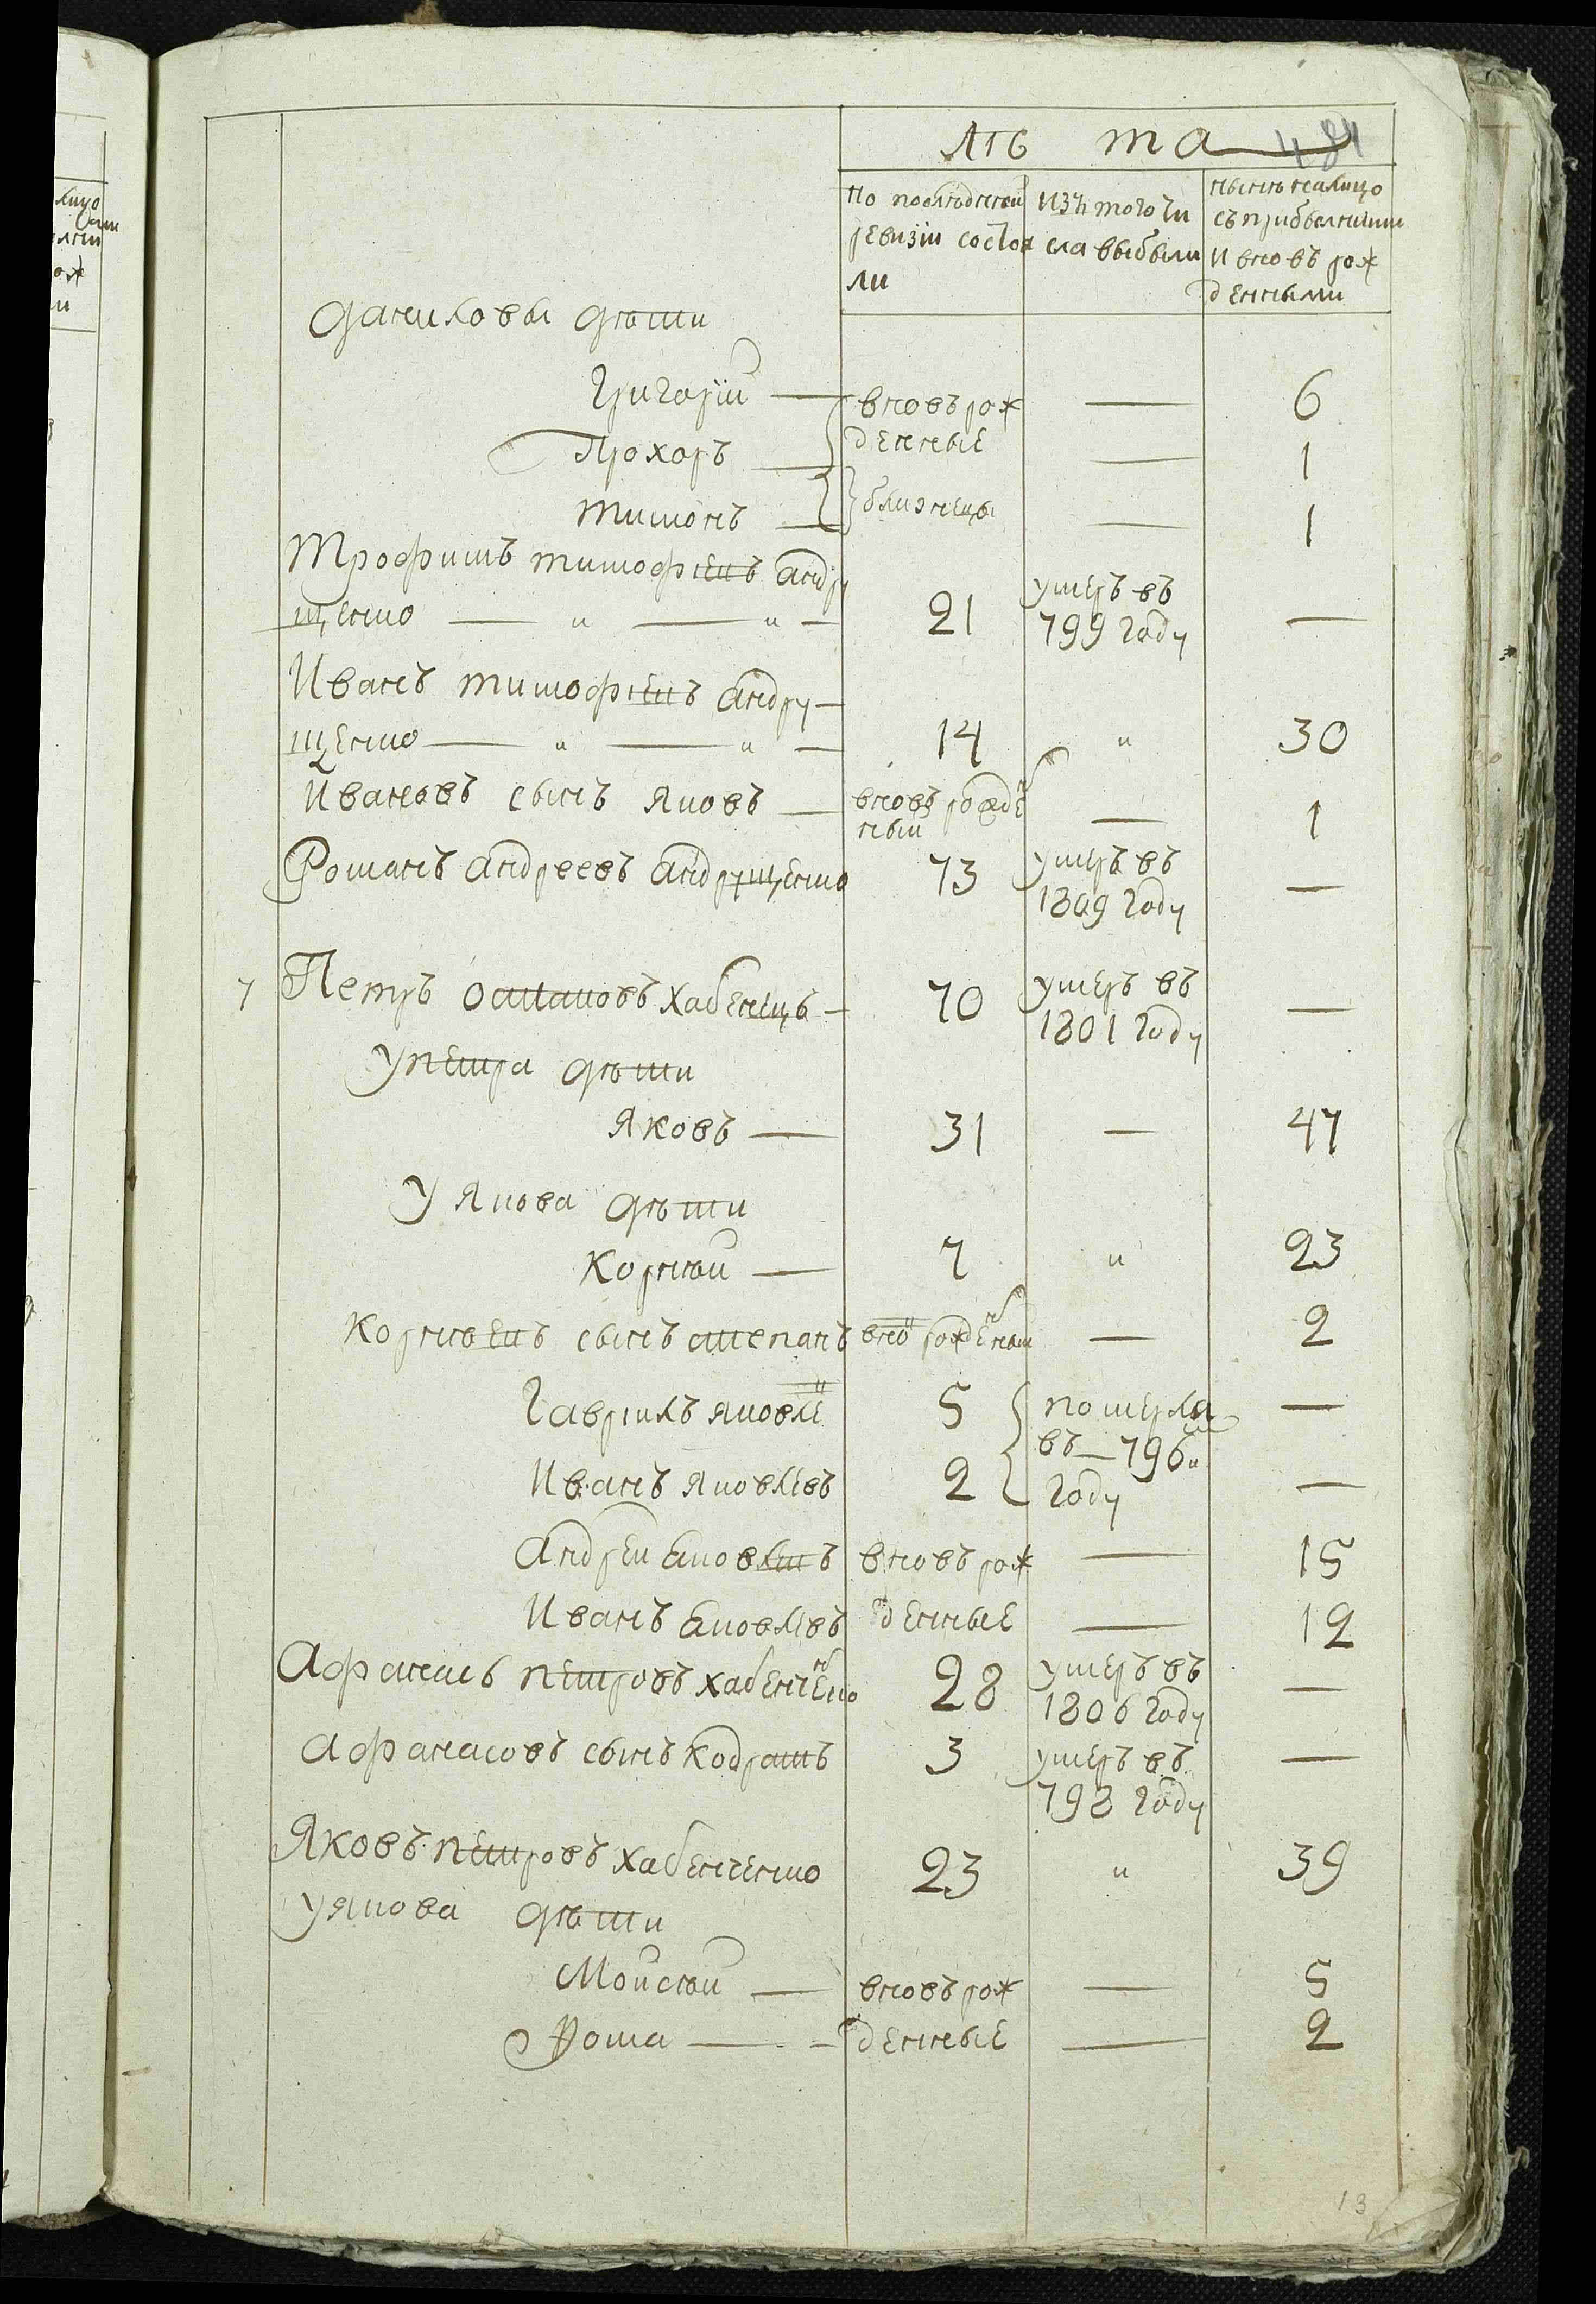 Лѣ та 481
По последнеи
ревизіи состоя
ли
изъ того чи
сла выбыли
нынѣ налицо
съ прибылными
и вновь рож
денными
даниловы дѣти
Григорій — вновь рож — 6
Прохоръ — денные — 1
тимонъ — близнецы — 1
Трофимъ тимофѣевъ андру
щенко — „ — „ — 21 умеръ въ 799 году —
Иванъ тимофѣевъ андру—
щенко — „ — „ — 14 „ 30
Ивановъ сынъ яковъ — вновь рожде
нный — 1
Романъ андреевъ андрущенко 73 умеръ въ
1809 году —
7 Петръ остаповъ хабенецъ — 70 умеръ въ
1801 году —
у петра дѣти
Яковъ — 31 — 47
у якова дѣти
Корнѣй — 7 „ 23
Корнѣевъ сынъ степанъ вно рожденыи — 2
Гаврилъ яковле 5 померли —
въ — 796м
Иванъ яковлевъ 2 году —
андреи яковлевъ вновь рож — 15
Иванъ яковлевъ денные — 12
Афанасъ петровъ хабенченко 28 умеръ въ
1806 году —
афанасовъ сынъ кодратъ 3 умеръ въ
798 году —
Яковъ петровъ хабенченко 23 „ 39
у якова дѣти
Мойсѣй — вновь рож — 5
Фома — денные — 2
13